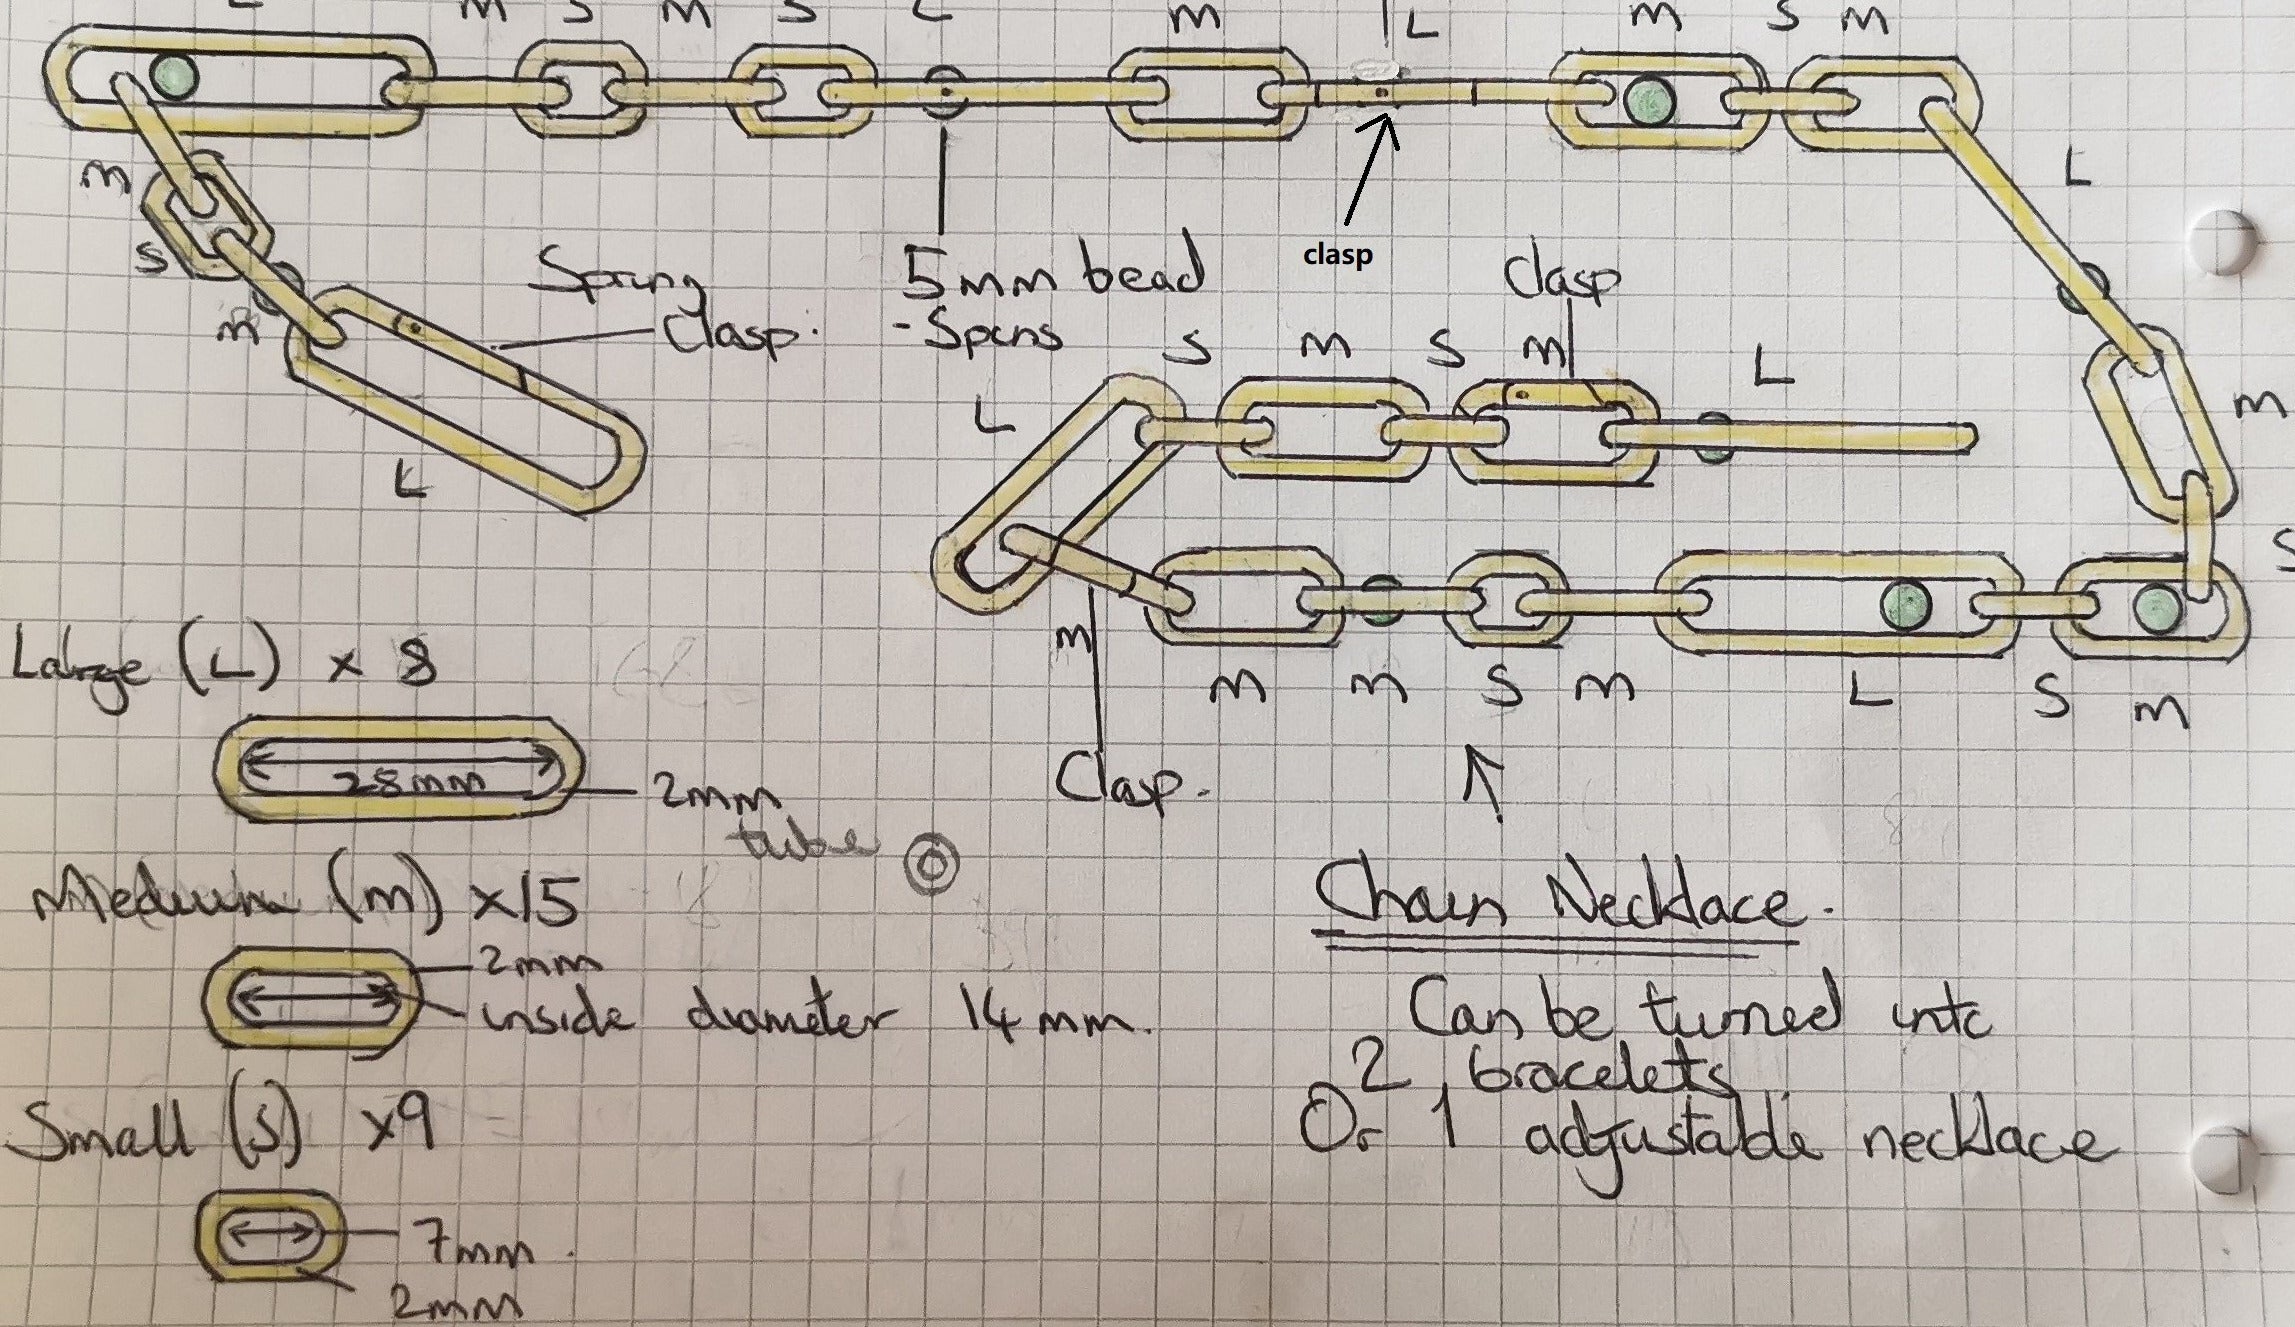 L m S m S L m L m S m
L
m
S
m
Spring
Clasp.
L
5mm bead
- Spins
clasp
Clasp
L S m S m L
m
S
m
Clasp.
m m S m L S m
Large (L) x 8
28mm
2mm
tube
Medium (m) x15
2mm
inside diameter 14mm.
Small (S) x9
7mm.
2mm
Chain Necklace.
Can be turned into
2 bracelets
Or 1 adjustable necklace